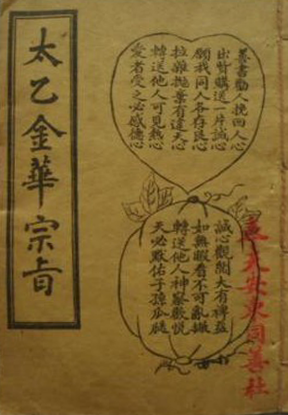 太乙金華宗旨
善書勸人挽回人心
出資購送一片誠心
願我同人各存良心
拉雜拋棄有違天心
轉送他人可見熱心
愛者受之必感德心
誠心觀閱大有裨益
如無暇看不可亂擲
轉送他人神察歡悅
天必默佑子孫瓜瓞
同善社